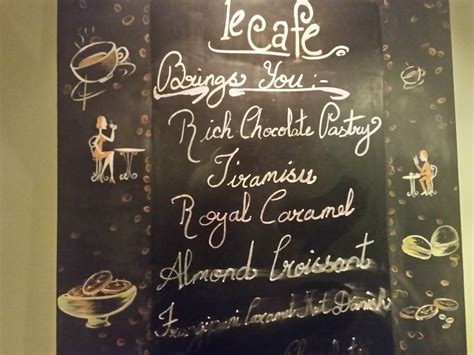 le Cafe
Brings You :-
Rich Chocolate Pastry
Tiramisu
Royal Caramel
Almond Croissant
Frangipani Caramel Nut Danish